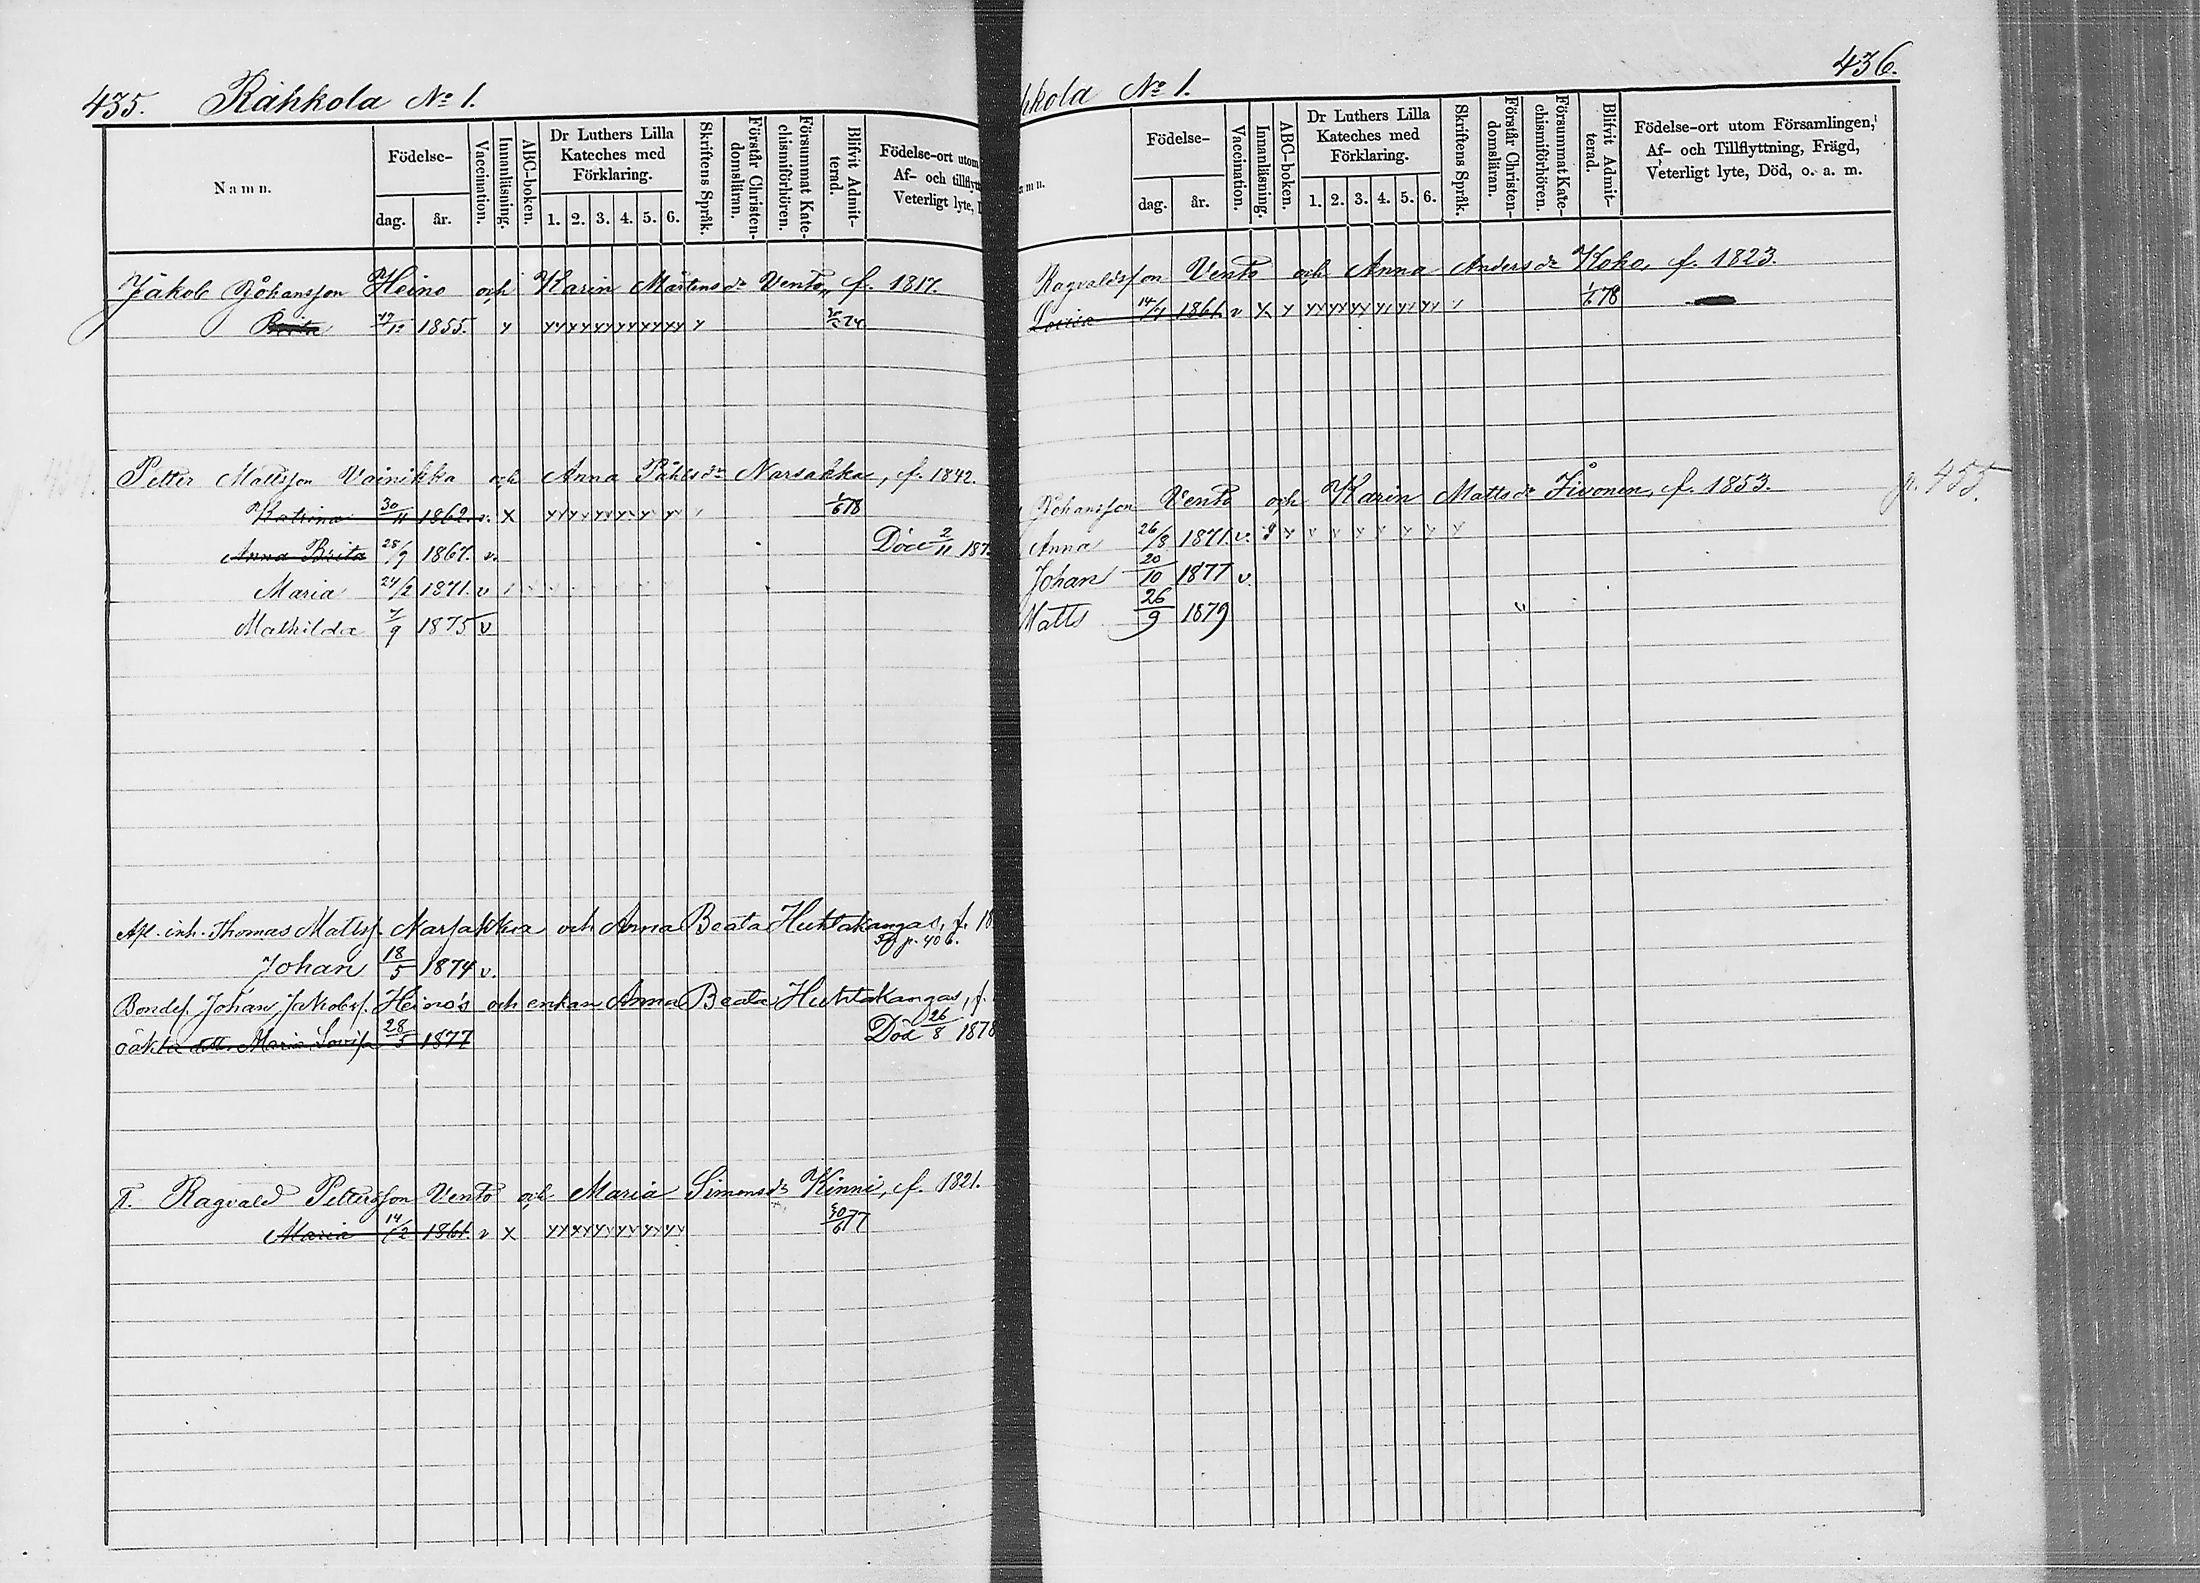 435. Rähkola No 1.
Namn.
Födelse-
dag. år.
Vaccination.
Innanläsning.
ABC-boken.
Dr Luthers Lilla Kateches med Förklaring.
1. 2. 3. 4. 5. 6.
Skriftens Språk.
Förstår Christen-domsläran.
Försummat Kate-chismiförhören.
Blifvit Admit-terad.
Födelse-ort utom
Af- och tillflytt
Veterligt lyte,
Jakob Johansson Heino och Karin Mårtensdr Vento, f. 1817.
Brita 17/12 1855.
Petter Mattsson Vainikka och Anna Påhlsdr Narsakka, f. 1842.
Katrina 30/11 1862. v. x 1/6 78
Anna Brita 28/9 1867. v. Död 2/11 187
Maria 24/2 1871. v
Mathilda 7/9 1875 v
Afl. inh. Thomas Matts. Narsakka och Anna Beata Huhtakangas, f. 18
p. 406.
Johan 18/5 1874 v.
Bondes. Johan Jakobs. Heino's och enkan Anna Beata Huhtakangas, f.
oäkta dtr. Maria Lovisa 28/5 1877 Död 26/8 1878
T. Ragvald Pettersson Vento och Maria Simonsdr Kinni, f. 1821.
Maria 14/2 1861. v x 30/6 77
hkola No 1. 436.
mn.
Födelse-
dag. år.
Vaccination.
Innanläsning.
ABC-boken.
Dr Luthers Lilla Kateches med Förklaring.
1. 2. 3. 4. 5. 6.
Skriftens Språk.
Förstår Christen-domsläran.
Försummat Kate-chismiförhören.
Blifvit Admit-terad.
Födelse-ort utom Församlingen,
Af- och Tillflyttning, Frägd,
Veterligt lyte, Död, o. a. m.
Ragvaldsson Vento och Anna Andersdr Koho, f. 1823.
Lovisa 14/4 1861. v x 1/6 78
Johansson Vento och Karin Mattsdr Iivonen, f. 1853. p. 455.
Anna 26/8 1871. v.
Johan 20/10 1877 v.
Matts 26/9 1879